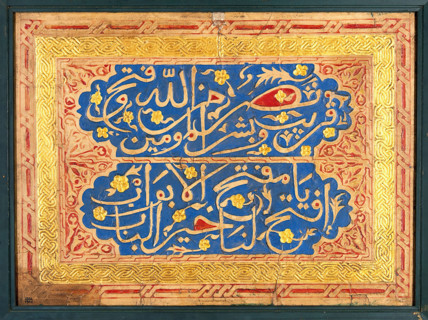 نصر من الله وفتح قريب وبشر المؤمنين
يا مفتح الأبواب افتح لنا خير الباب